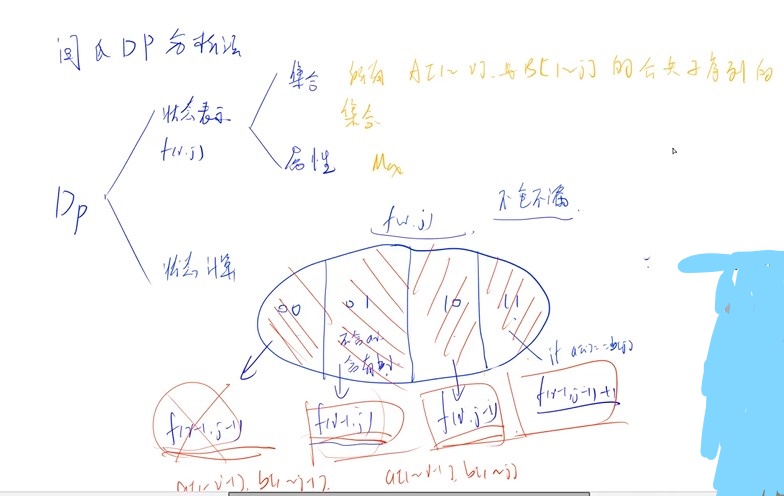 闫氏DP分析法
集合 所有 A[1~i] 与 B[1~j] 的公共子序列的
集合
状态表示
f(i,j)
属性 Max
DP
f(i,j) 不重不漏
状态计算
00 01 10 11
不含a[i]
含有b[j]
if a[i]==b[j]
f(i-1,j-1) f(i-1,j) f(i,j-1) f(i-1,j-1)+1
a[1~i-1], b[1~j-1] a[1~i-1], b[1~j]